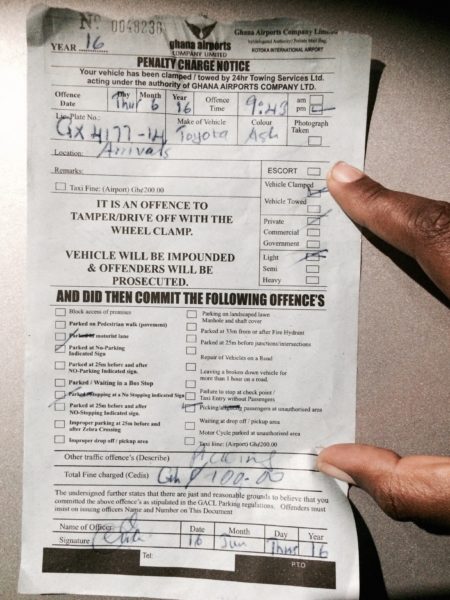 No 0048238
ghana airports
COMPANY LIMITED
Ghana Airports Company Limited
KOTOKA INTERNATIONAL AIRPORT
YEAR 16
PENALTY CHARGE NOTICE
Your vehicle has been clamped / towed by 24hr Towing Services Ltd.
acting under the authority of GHANA AIRPORTS COMPANY LTD.
Offence Date Day Month Year Offence Time am pm
Thur 6 16 9:43
Lic. Plate No.: Make of Vehicle Colour Photograph Taken
GX 4177-14 Toyota Ash
Location: Arrivals
Remarks:
ESCORT
Taxi Fine: (Airport) Gh¢200.00
Vehicle Clamped
Vehicle Towed
Private
Commercial
Government
Light
Semi
Heavy
IT IS AN OFFENCE TO
TAMPER/DRIVE OFF WITH THE
WHEEL CLAMP.
VEHICLE WILL BE IMPOUNDED
& OFFENDERS WILL BE
PROSECUTED.
AND DID THEN COMMIT THE FOLLOWING OFFENCE'S
Block access of premises
Parked on Pedestrian walk (pavement)
Parked at motorist lane
Parked at No-Parking
Indicated Sign
Parked at 25m before and after
NO-Parking Indicated sign.
Parked / Waiting in a Bus Stop
Parked/Stopping at a No Stopping indicated Sign
Parked at 25m before and after
NO-Stopping Indicated Sign.
Improper parking at 25m before and
after Zebra Crossing
Improper drop off / pickup area
Parking on landscaped lawn
Manhole and shaft cover
Parked at 33m from or after Fire Hydrant
Parked at 25m before junctions/intersections
Repair of Vehicles on a Road
Leaving a broken down vehicle for
more than 1 hour on a road.
Failure to stop at check point /
Taxi Entry without Passengers
Picking/ passengers at unauthorised area
Waiting at drop off / pickup area
Motor Cycle parked at unauthorised area
Taxi fine: (Airport) Gh¢200.00
Other traffic offence's (Describe) Picking
Total Fine charged (Cedis) Gh¢ 100.00
The undersigned further states that there are just and reasonable grounds to believe that you
committed the above offence's as stipulated in the GACL Parking regulations. Offenders must
insist on issuing officers Name and Number on This Document
Name of Officer Date Month Day Year
Signature 16 Jun Thur 16
Tel:
P.T.O